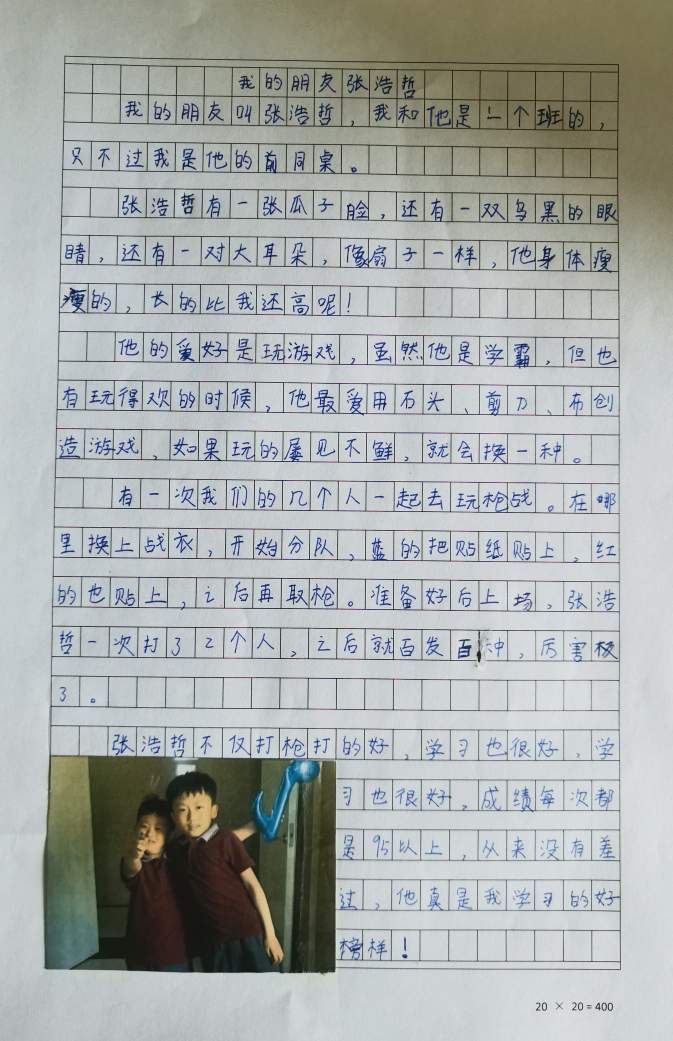 我的朋友张浩哲
我的朋友叫张浩哲，我和他是一个班的，
只不过我是他的前同桌。
张浩哲有一张瓜子脸，还有一双乌黑的眼
睛，还有一对大耳朵，像扇子一样，他身体瘦
瘦的，长的比我还高呢！
他的爱好是玩游戏，虽然他是学霸，但也
有玩得欢的时候，他最爱用石头、剪刀、布创
造游戏，如果玩的屡见不鲜，就会换一种。
有一次我们的几个人一起去玩枪战。在哪
里换上战衣，开始分队，蓝的把贴纸贴上，红
的也贴上，之后再取枪。准备好后上场，张浩
哲一次打了2个人，之后就百发百冲，厉害极
了。
张浩哲不仅打枪打的好，学习也很好，学
习也很好，成绩每次都
是95以上，从来没有差
过，他真是我学习的好
榜样！
20 × 20 = 400